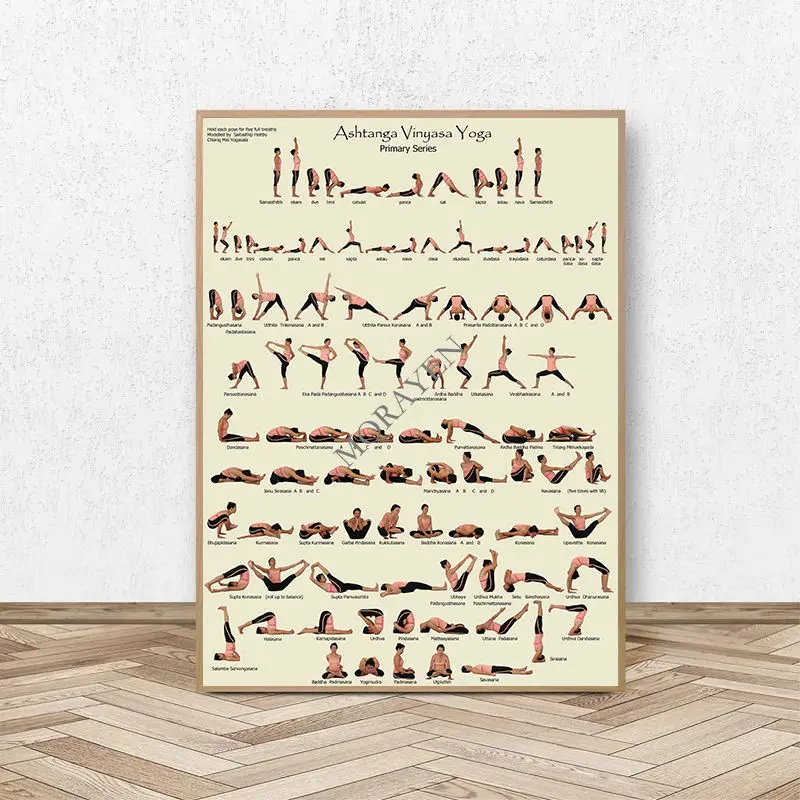 Hold each pose for five full breaths
Modelled by Saibaithip Holtby
Chiang Mai Yogasala
Ashtanga Vinyasa Yoga
Primary Series
Samasthitih ekam dve trini catvari panca sat sapta astau nava Samasthitih
ekam dve trini catvari panca sat sapta astau nava dasa ekadasa dvadasa trayodasa caturdasa panca- so- sapta-
dasa dasa dasa
Padangusthasana Utthita Trikonasana A and B Utthita Parsva Konasana A and B Prasarita Padottanasana A B C and D
Padahastasana
Parsvottanasana Eka Pada Padangusthasana A B C and D Ardha Baddha Utkatasana Virabhadrasana A and B
padmottanasana
Dandasana Paschimattanasana A C and D Purvattanasana Ardha Baddha Padma Triang Mukhaekapada
Janu Sirasana A B and C Marichyasana A B C and D Navasana (five times with lift)
Bhujapidasana Kurmasana Supta Kurmasana Garba Pindasana Kukkutasana Baddha Konasana A and B Konasana Upavistha Konasana
Supta Konasana (roll up to balance) Supta Parsvasahita Ubhaya Urdhva Mukha Setu Bandhasana Urdhva Dhanurasana
Padangusthasana Paschimattanasana
Salamba Sarvangasana Halasana Karnapidasana Urdhva Pindasana Matsyasana Uttana Padasana Sirasana Urdhva Dandasana
Baddha Padmasana Yogimudra Padmasana Utplutih Savasana
MORAYEN